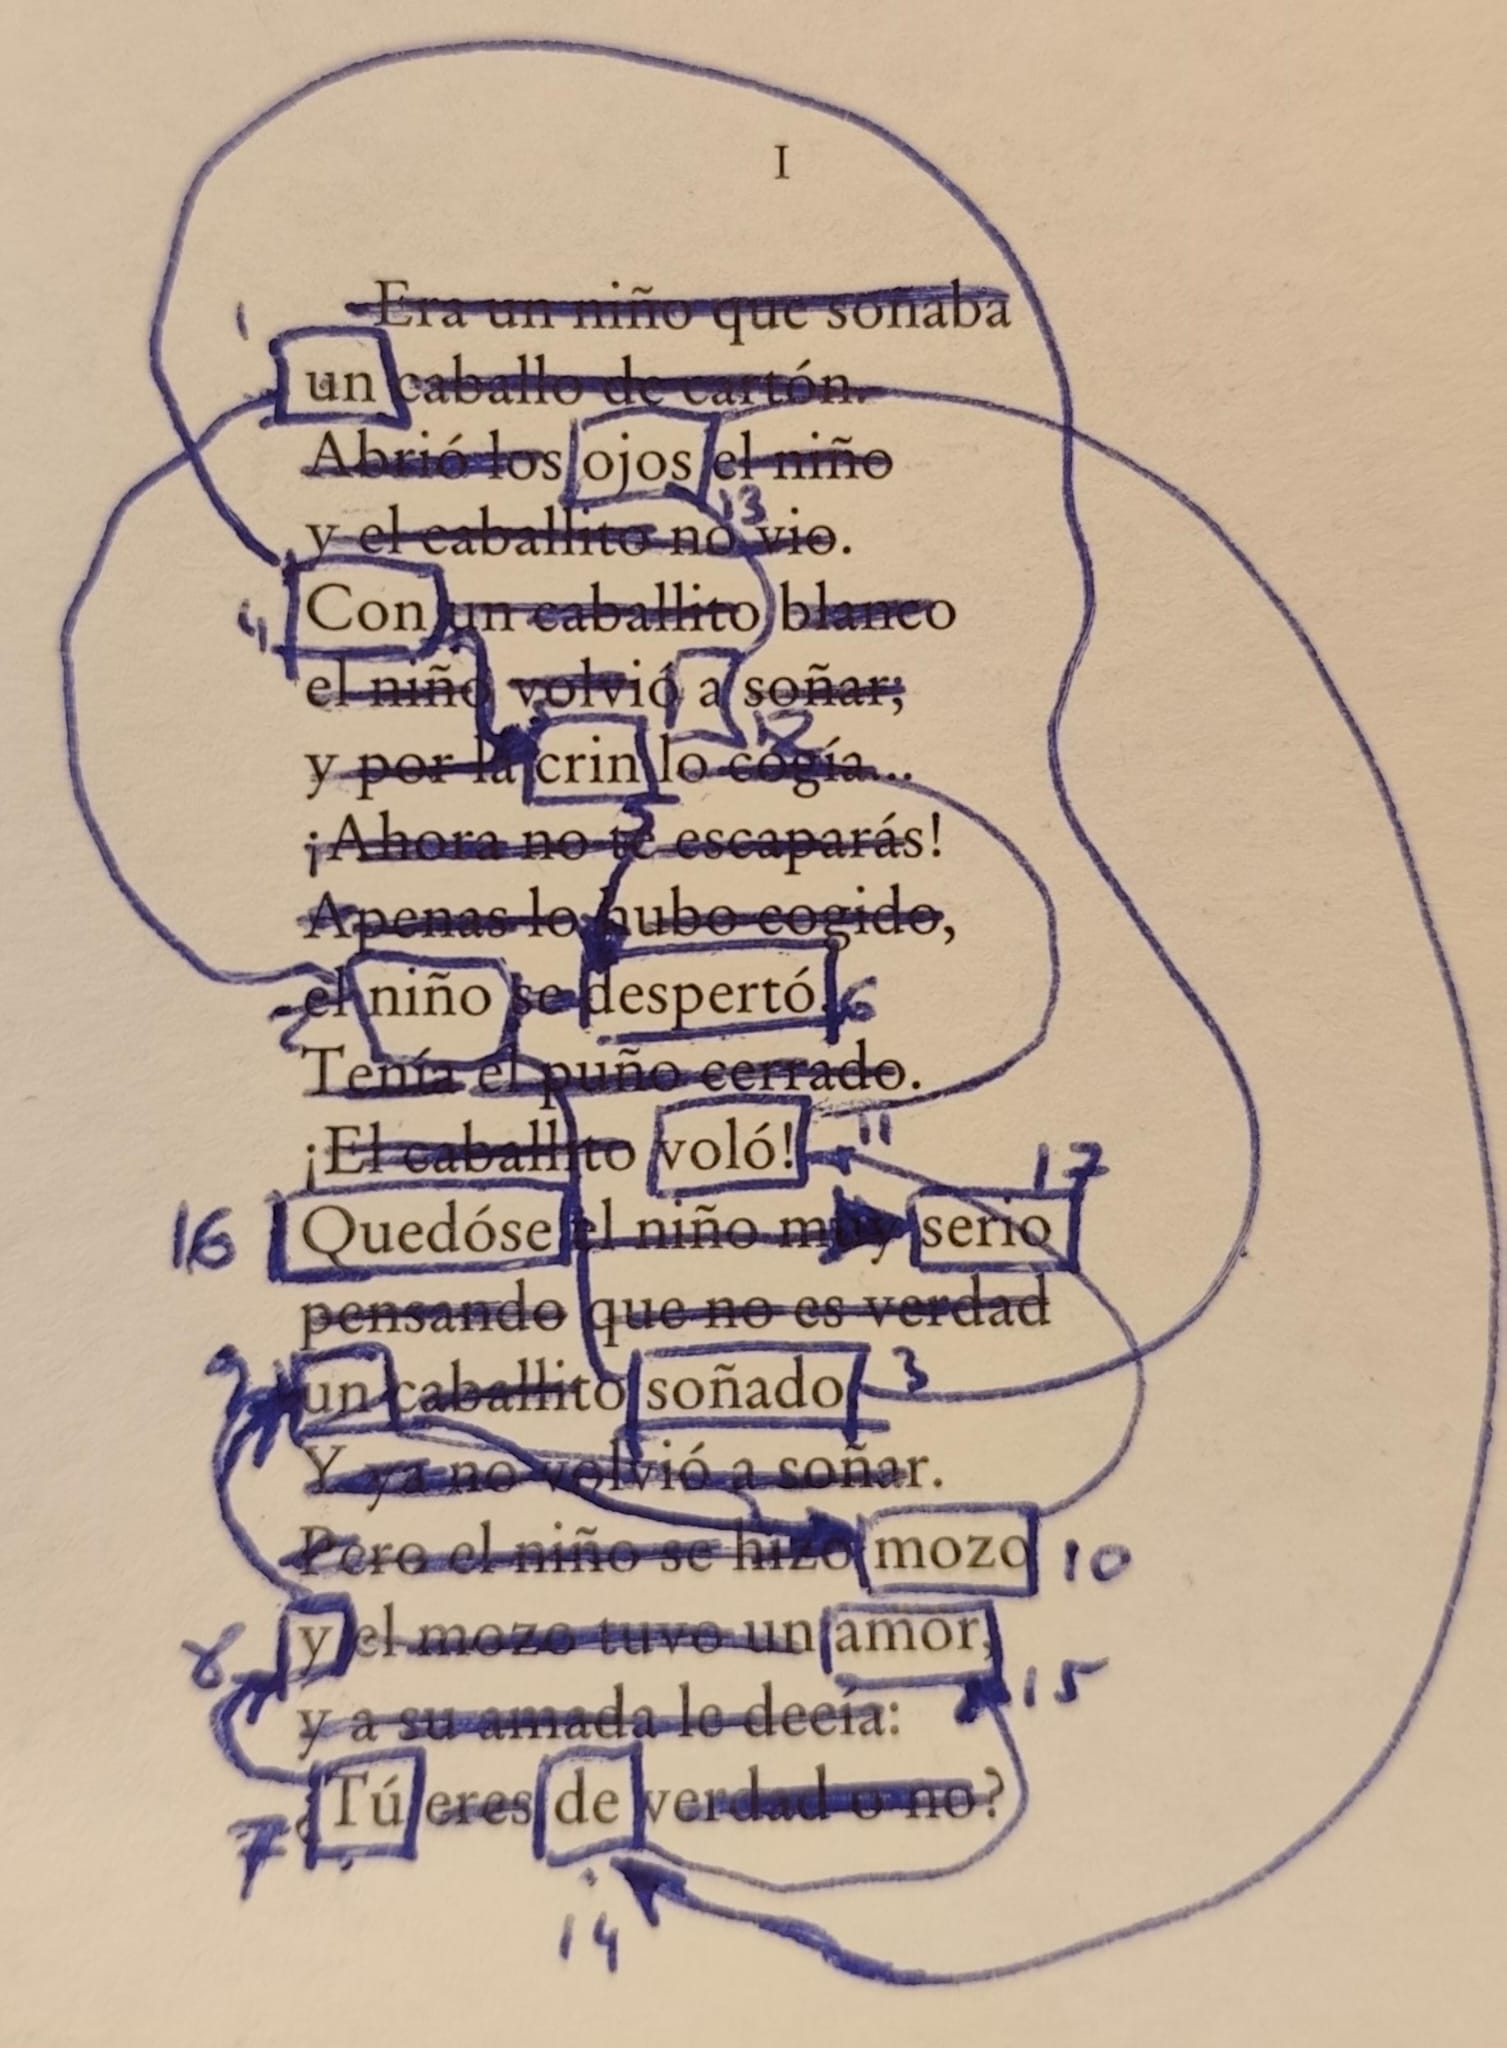 I
1
Era un niño que soñaba
un caballo de cartón.
Abrió los ojos el niño
13
y el caballito no vio.
4 Con un caballito blanco
el niño volvió a soñar;
12
y por la crin lo cogía...
5
¡Ahora no te escaparás!
Apenas lo hubo cogido,
el niño se despertó. 6
2
Tenía el puño cerrado.
¡El caballito voló! 11
17
16 Quedóse el niño muy serio
pensando que no es verdad
9 un caballito soñado 3
Y ya no volvió a soñar.
Pero el niño se hizo mozo 10
8 y el mozo tuvo un amor,
15
y a su amada le decía:
7 ¿Tú eres de verdad o no?
14